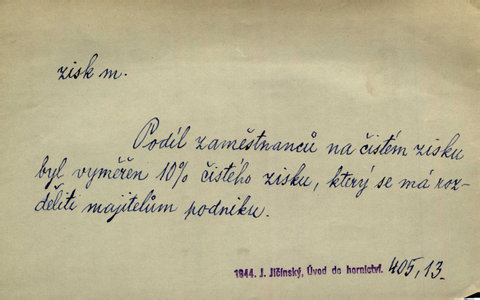 zisk m.
Podíl zaměstnanců na čistém zisku
byl vyměřen 10% čistého zisku, který se má roz-
děliti majitelům podniku.
1944. J. Jičínský, Úvod do hornictví. 405,13.